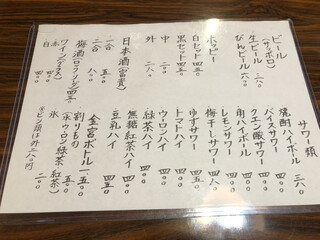 サワー類
焼酎ハイボール 三八〇
バイスサワー 四〇〇
クエン酸サワー 四〇〇
角ハイボール 四五〇
レモンサワー 四〇〇
梅干しサワー 四八〇
ゆずサワー 四五〇
トマトハイ 四〇〇
ウーロンハイ 四〇〇
緑茶ハイ 四〇〇
無糖紅茶ハイ 四〇〇
豆乳ハイ 四五〇
金宮ボトル 一五〇〇
割りもの 五〇〇
(氷ウーロン緑茶紅茶)
氷 二〇〇
ビール
(サッポロ)
生ビール
びんビール 六八〇
ホッピー
白セット 四五〇
黒セット 四五〇
中 二〇〇
外 二八〇
日本酒(富貴)
一合 四五〇
二合 八〇〇
梅酒(ロック・ソーダ)四五〇
ワイン(グラス)
赤 四〇〇
白 四〇〇